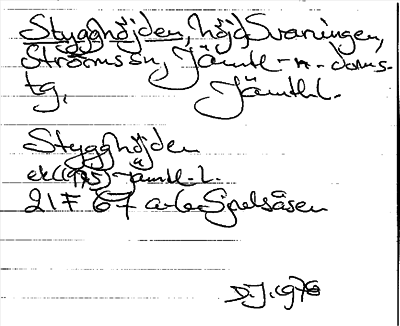 Stygghöjden, höjd Svaningen,
Ströms sn, Jämtl-n. doms-
tg, Jämtl.l.
Stygghöjden
ek (1975) Jämtl.l.
21F 67 a-b Spelsåsen
D.J. 1976